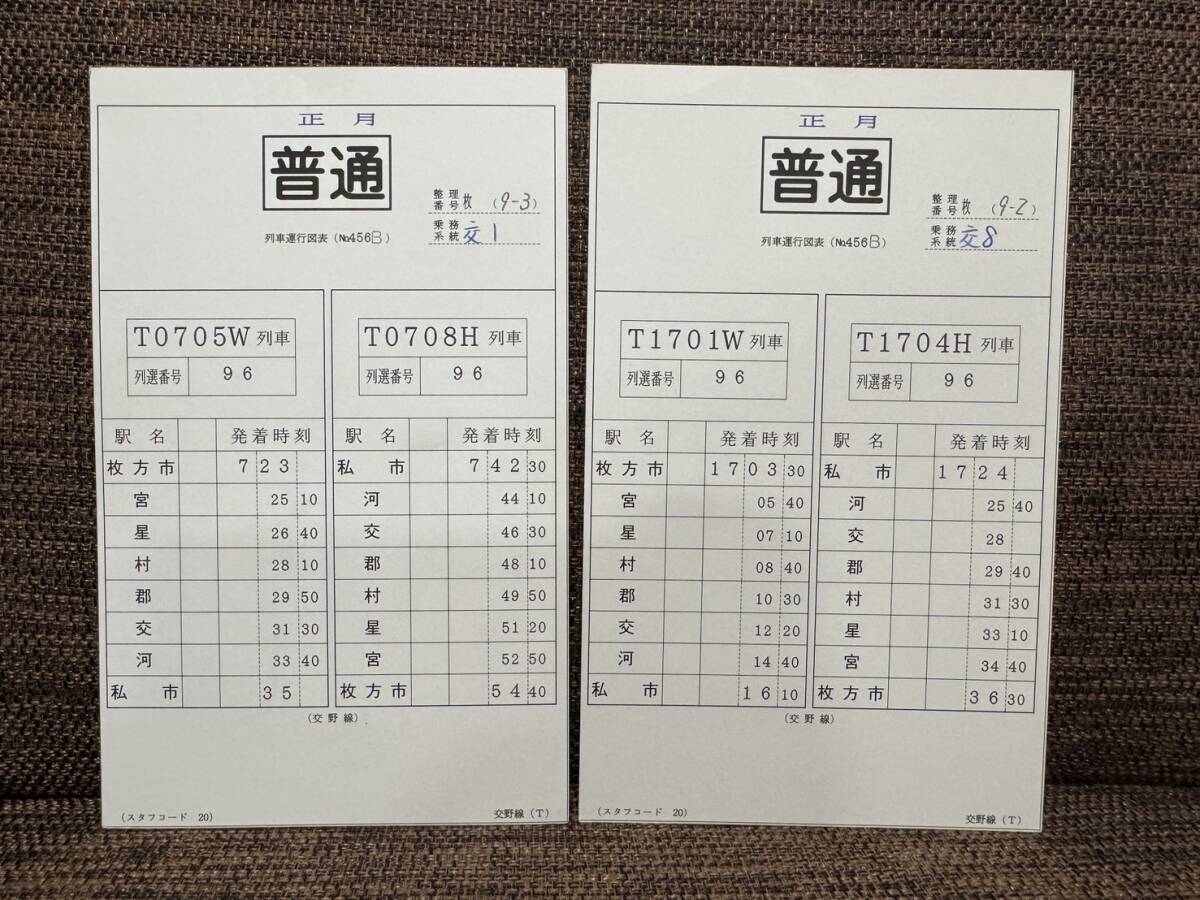 正月
普通
整理番号 枚 (9-3)
列車運行図表 (No.456B)
乗務系統 交1
T0705W 列車
列選番号 96
駅名 発着時刻
枚方市 7 23
宮 25 10
星 26 40
村 28 10
郡 29 50
交 31 30
河 33 40
私市 35
T0708H 列車
列選番号 96
駅名 発着時刻
私市 7 42 30
河 44 10
交 46 30
郡 48 10
村 49 50
星 51 20
宮 52 50
枚方市 54 40
(交野線)
(スタフコード 20)
交野線(T)
正月
普通
整理番号 枚 (9-2)
列車運行図表 (No.456B)
乗務系統 交8
T1701W 列車
列選番号 96
駅名 発着時刻
枚方市 17 03 30
宮 05 40
星 07 10
村 08 40
郡 10 30
交 12 20
河 14 40
私市 16 10
T1704H 列車
列選番号 96
駅名 発着時刻
私市 17 24
河 25 40
交 28
郡 29 40
村 31 30
星 33 10
宮 34 40
枚方市 36 30
(交野線)
(スタフコード 20)
交野線(T)